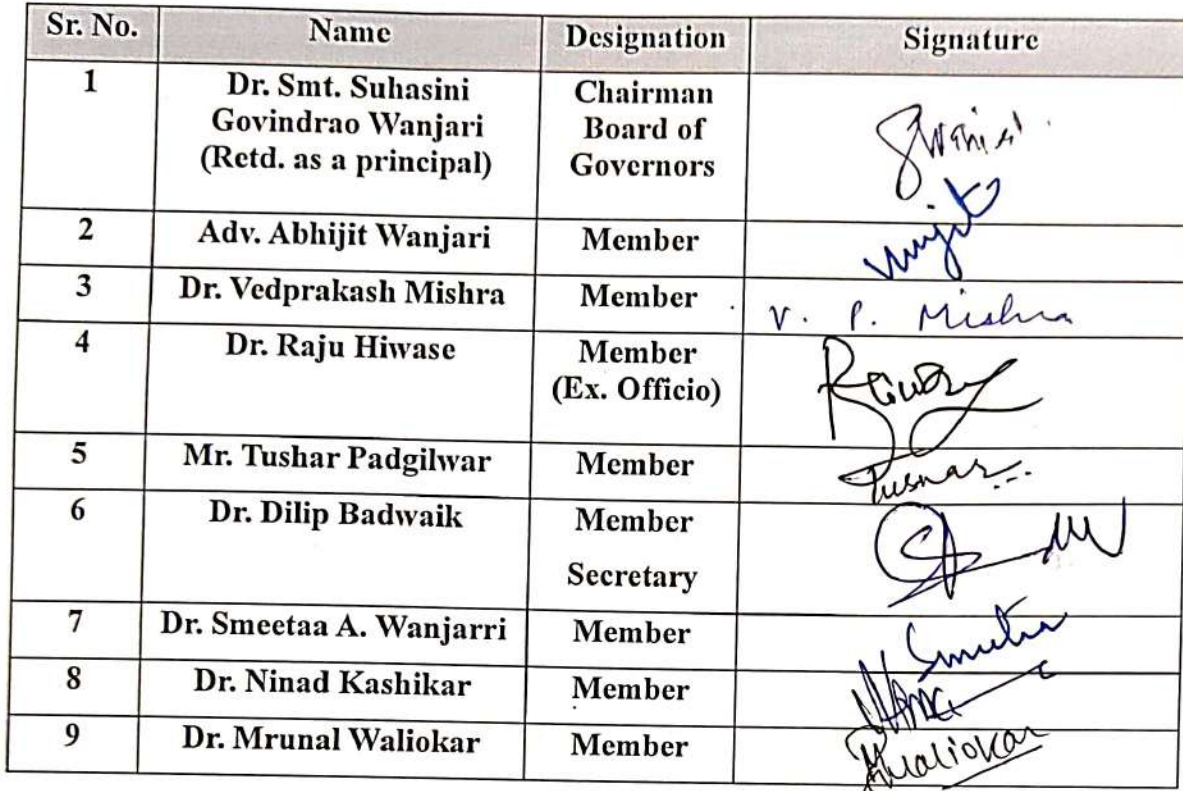 Sr. No. Name Designation Signature
1 Dr. Smt. Suhasini Chairman
Govindrao Wanjari Board of
(Retd. as a principal) Governors
2 Adv. Abhijit Wanjari Member
3 Dr. Vedprakash Mishra Member V. P. Mishra
4 Dr. Raju Hiwase Member
(Ex. Officio)
5 Mr. Tushar Padgilwar Member Tushar
6 Dr. Dilip Badwaik Member
Secretary
7 Dr. Smeetaa A. Wanjarri Member
8 Dr. Ninad Kashikar Member
9 Dr. Mrunal Waliokar Member Mwaliokar